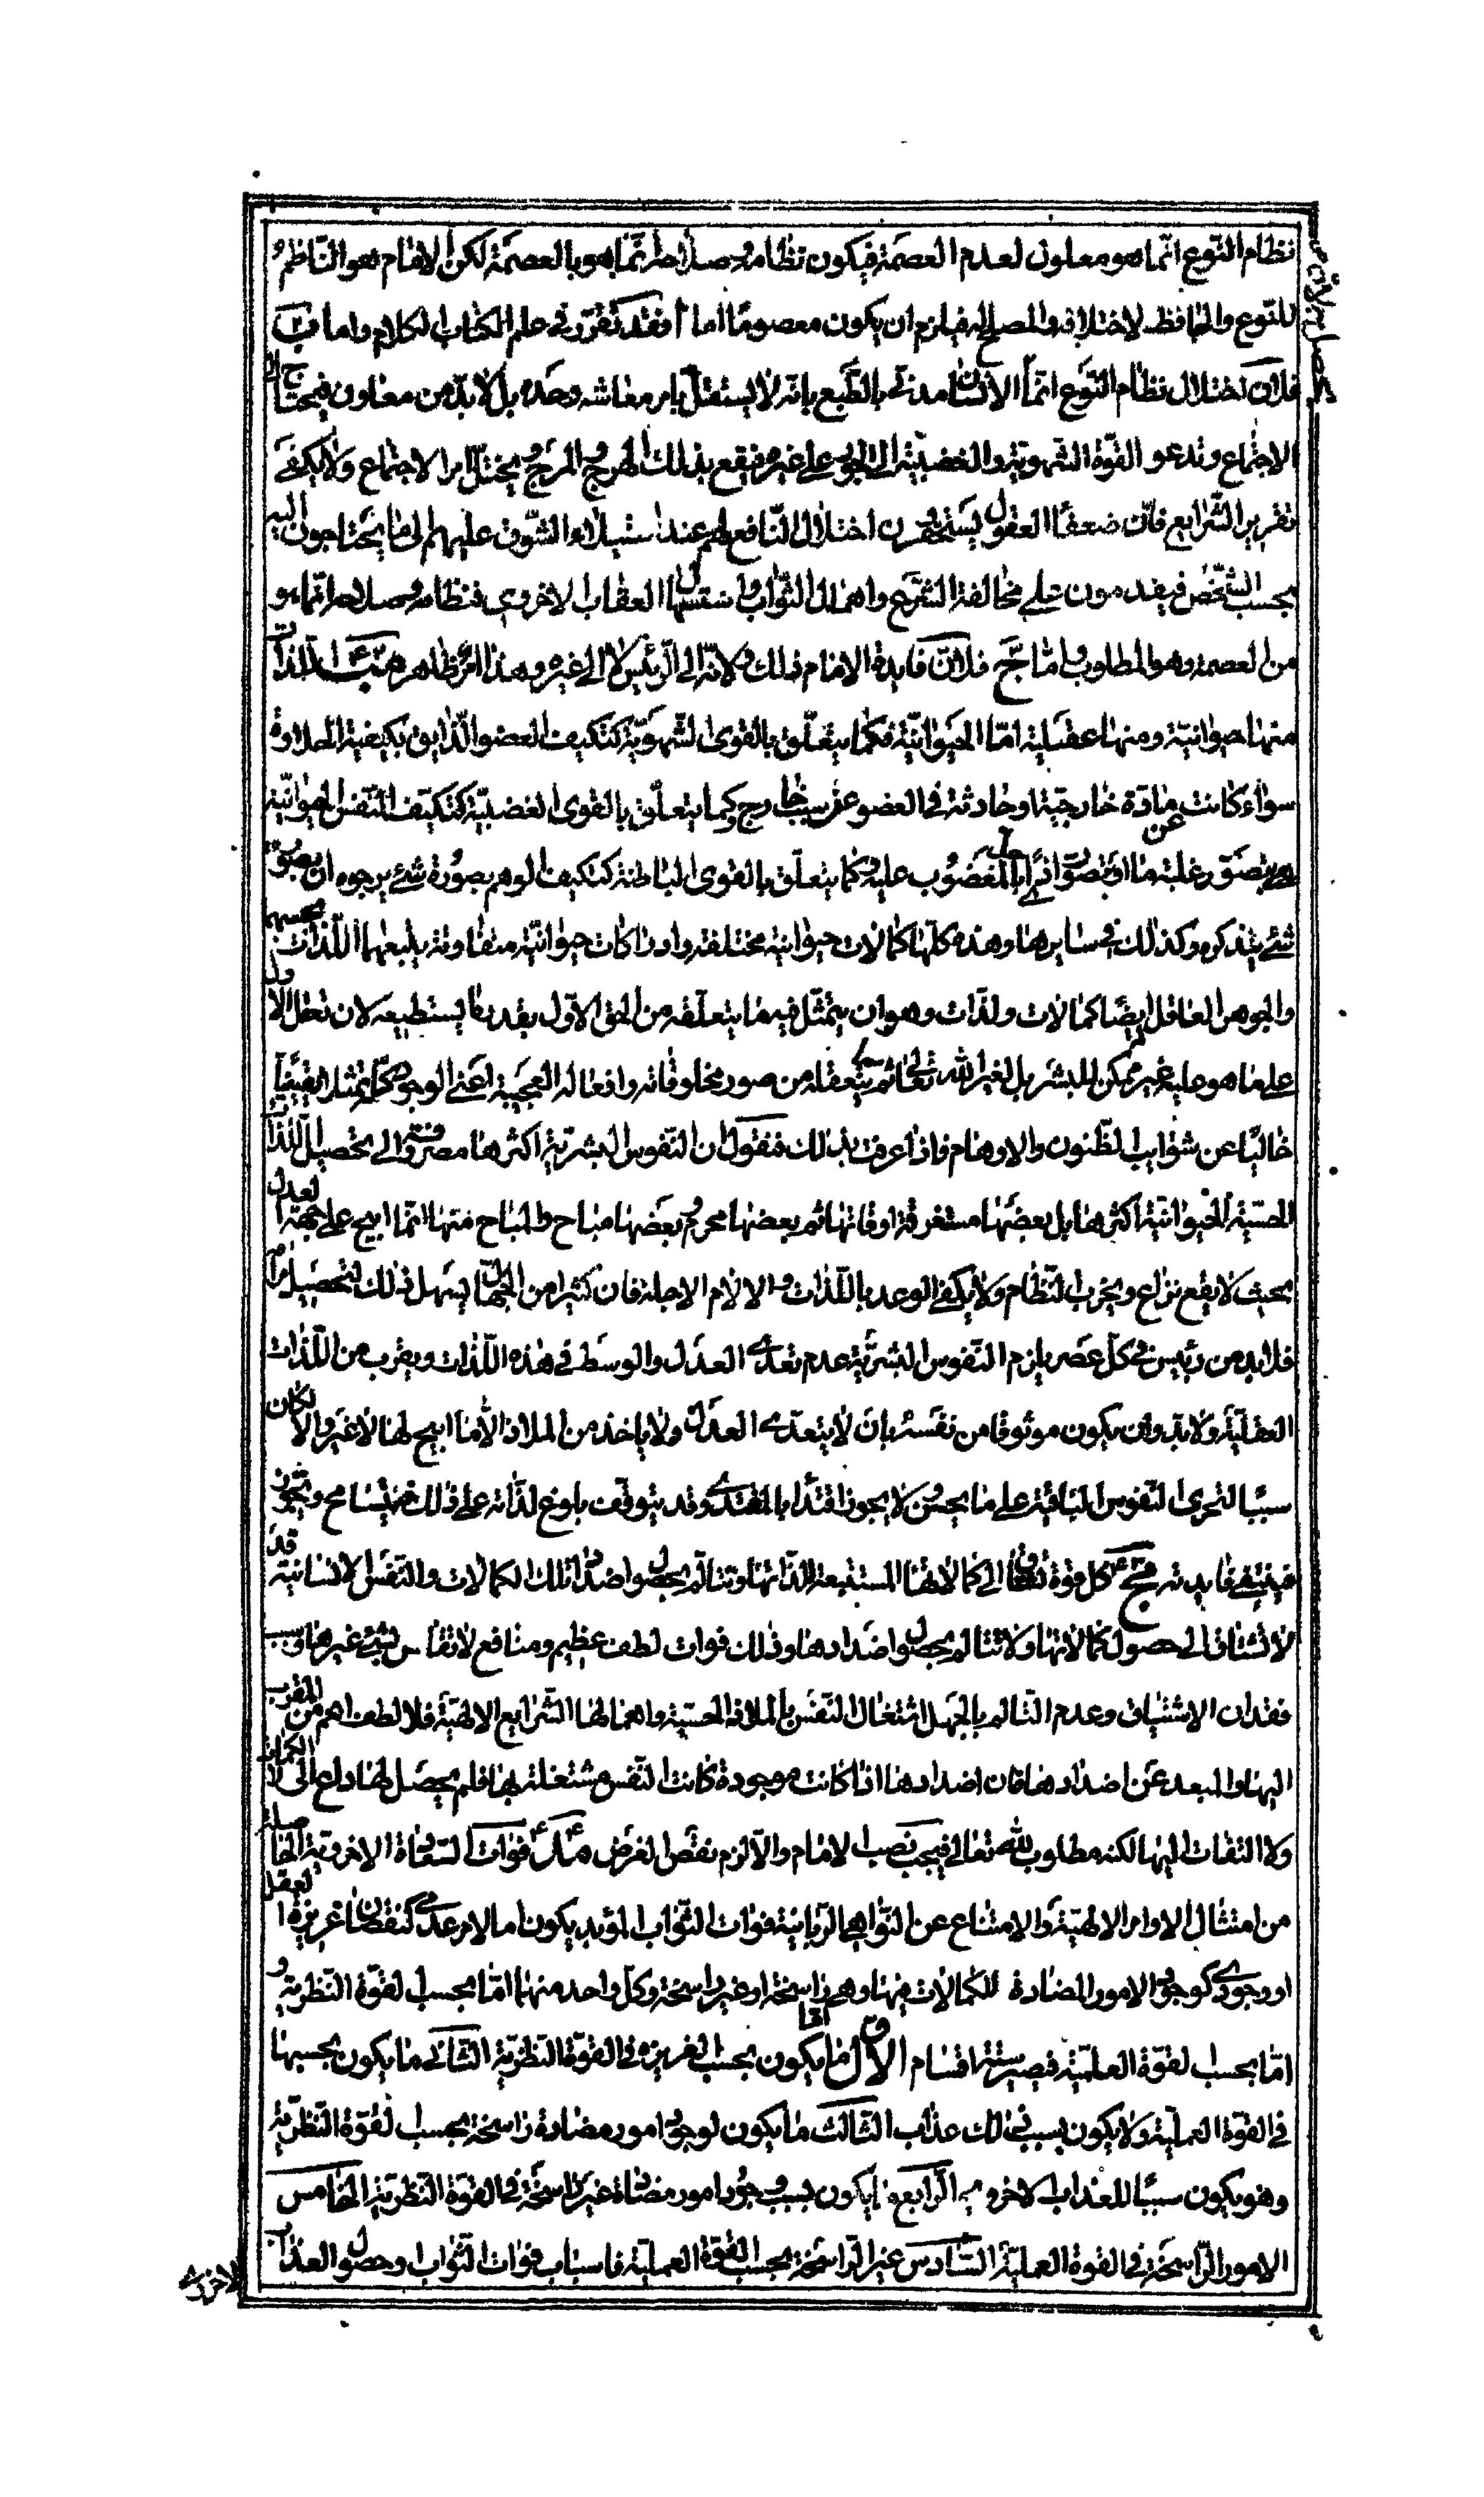 نظام النّوع انّما هو معلول لعدم العصمة فيكون نظامه وصلاحه انّما هو بالعصمة لكن الامام هو النّاظم
للنّوع والحافظ لاختلافه والمصلح له فيلزم ان يكون معصومًا اما ا فقد تقرّر في علم الكتاب الكلام واما ب
فلان اختلال نظام النّوع انّما الانسان مدنيّ بالطّبع بانّه لا يستقلّ بامر معاشه وحده بل لا بدّ من معاون فيحتاج الى
الاجتماع وتدعو القوّة الشهويّة والغضبيّة الى الجور على غيره فيقع بذلك الهرج والمرج ويختلّ امر الاجتماع ولا يكفي
تقرير الشّرايع فانّ ضعفاء العقول يستحقرن اختلال النّافع لهم عند استيلاء الشّوق عليهم الى ما يحتاجون اليه
بحسب الشّخص فيقدمون على مخالفة الشّرع واهمال الثّواب واستسهال العقاب الاخروي فنظامه وصلاحه انّما هو
من العصمة وهو المطلوب وامّا ج فلانّ فايدة الامام ذلك ولانّه الى الرّئيس لا الى غيره وهذا امر ظاهر اللذات
منها حيوانيّة ومنها عقليّة امّا الحيوانيّة فكما يتعلّق بالقوى الشّهويّة كتكيف العضو الذّايق بكيفيّة الحلاوة
سواء كانت عن مادّة خارجيّة او حادثة في العضو عن سبب خارج وكما يتعلّق بالقوى الغضبيّة كتكيّف النّفس الحيوانيّة
بتصوّر غلبة ما او بتصوّر اذى حلّ بالمغضوب عليه وكما يتعلّق بالقوى الباطنة كتكيف الوهم بصورة شئ يرجوه او بصورة
شئ يتذكره وكذلك في سايرها وهذه كلّها كمالات حيوانيّة مختلفة وادراكات حيوانيّة متفاوتة يتبعها اللّذات بحسبها
والجوهر العاقل ايضًا كمالات ولذّات وهو ان يتمثّل فيه ما يتعلّقه من الحق الاوّل بقدر ما يستطيعه لان تعقّل الاوّل
على ما هو عليه غير ممكن للبشر بل لغير اللّه تعالى ثم ما يتعقله من صور مخلوقاته وافعاله العجيبة اعني الوجود كلّه تمثلا يقينيّا
خاليًا عن شوايب الظّنون والاوهام فاذا عرفت ذلك فنقول ان النّفوس البشريّة اكثرها مصروفة الى تحصيل اللّذات
الحسيّة الحيوانيّة اكثرها بل بعضها مستغرقة اوقاتها ثم بعضها محرّم وبعضها مباح والمباح منها انّما ابيح على جهة العدل
بحيث لا يقع نزاع ويخرب النّظام ولا يكفي الوعد باللّذات والالام الاجلة فان كثيرا من الجهّال يسهل ذلك لتحصيل مرامه
فلا بد من رئيس في كلّ عصر يلزم النّفوس البشريّة عدم تعدّي العدل والوسط في هذه اللّذات ويقرب من اللّذات
العقليّة ولا بدّ وان يكون موثوقا من نفسه بان لا يتعدّى العدل ولا ياخذ من الملاذ الّا ما ابيح لها لا غير والّا لكان
سببا لتجرى النّفوس الباقية على ما يحسن ولا يجوز اقتدا بالمقتدى وقد يتوقّف بلوغ لذّاته على ذلك فيتسامح ويتجوز
فينتفي فايدته كل قوة تشتاق الى كمالاتها المستتبعة للذّاتها وتتالّم بحصول اضداد تلك الكمالات والنّفس الانسانيّة قد
لا تشتاق الى حصول كمالاتها ولا تتالم بحصول اضدادها وذلك فوات لطف عظيم ومنافع لا تقاس بشئ غيرها وسبب
فقدان الاشتياق وعدم التّالم بالجهل اشتغال النّفس بالملاذ الحسيّة واهمالها الشّرايع الالهيّة فلا لطف اهم من المقرب
اليها والمبعد عن اضدادها فان اضدادها اذا كانت موجودة كانت النّفس مشتغلة بها فلم يحصل لها داع الى الكمالات
ولا التفات اليها لكنه مطلوب للّه تعالى فيجب نصب الامام والّا لزم نقض الغرض فوات السّعادة الاخرويّة الحاصلة
من امتثال الاوامر الالهيّة والامتناع عن النّواهي الرّبانيّة فوات الثّواب المؤبد يكون اما لامر عدمي كنقصان غريزة العقل
او وجودي كوجود الامور المضادة للكمالات فيها وهي امّا راسخة او غير راسخة وكل واحد منهما امّا بحسب القوّة النّظريّة و
امّا بحسب القوّة العلميّة فيصير ستة اقسام الاوّل ما يكون بحسب الغريزة في القوّة النّظريّة الثاني ما يكون بحسبها
في القوّة العمليّة ولا يكون بسبب ذلك عذاب الثّالث ما يكون لوجود امور مضادة راسخة بحسب القوّة النّظريّة
وهو يكون سببًا للعذاب الاخروي الرّابع ما يكون بسبب وجود امور مضادة غير راسخة في القوّة النّظريّة الخامس
الامور الرّاسخة في القوة العمليّة السّادس غير الرّاسخة بحسب القوة العمليّة فاسباب فوات الثّواب وحصول العذاب
الاخروي